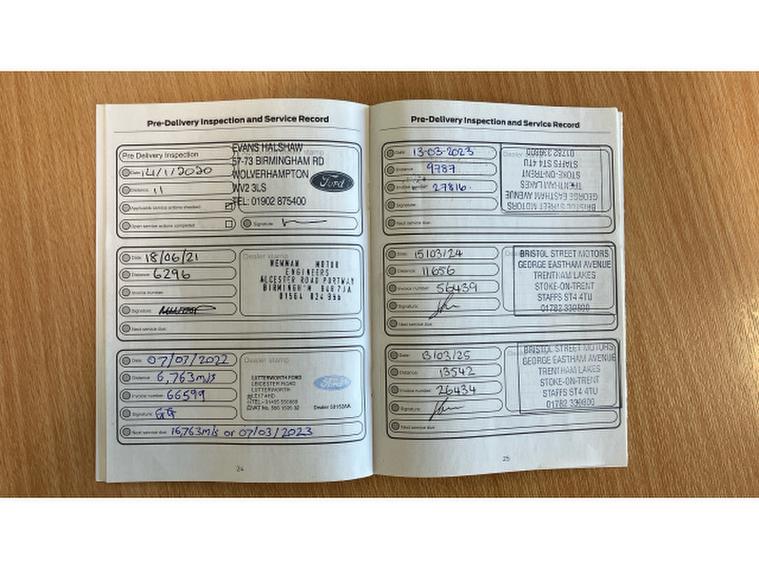 Pre-Delivery Inspection and Service Record
Pre Delivery Inspection
Date 14/1/2020
Distance: 11
Applicable service actions checked
Open service actions completed
Signature
EVANS HALSHAW
57-73 BIRMINGHAM RD
WOLVERHAMPTON
WV2 3LS
TEL: 01902 875400
Ford
Date: 18/06/21
Distance: 6296
Invoice number:
Signature:
Next service due:
Dealer stamp
NEWMAN MOTOR
ENGINEERS
ALCESTER ROAD PORTWAY
BIRMINGH'M B48 7JA
01564 824 996
Date: 07/07/2022
Distance: 6,763m/s
Invoice number: 66599
Signature:
Next service due: 16,763m/s or 07/03/2023
Dealer stamp
LUTTERWORTH FORD
LEICESTER ROAD
LUTTERWORTH
LE17 4HD
Ford
24
Pre-Delivery Inspection and Service Record
Date: 13-03-2023
Distance: 9787
Invoice number: 27816.
Signature:
Next service due:
BRISTOL STREET MOTORS
GEORGE EASTHAM AVENUE
TRENTHAM LAKES
STOKE-ON-TRENT
STAFFS ST4 4TU
01782 339800
Date: 15/03/24
Distance: 11656
Invoice number: 56439
Signature:
Next service due:
BRISTOL STREET MOTORS
GEORGE EASTHAM AVENUE
TRENTHAM LAKES
STOKE-ON-TRENT
STAFFS ST4 4TU
01782 339800
Date: 13/03/25
Distance: 13542
Invoice number: 26434
Signature:
Next service due:
BRISTOL STREET MOTORS
GEORGE EASTHAM AVENUE
TRENTHAM LAKES
STOKE-ON-TRENT
STAFFS ST4 4TU
01782 339800
25